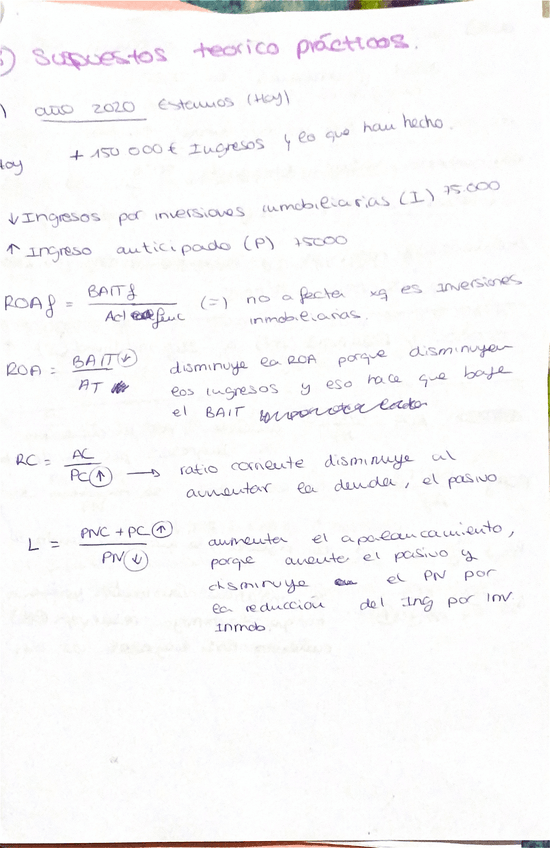 ) Supuestos teorico prácticos.
) año 2020 Estamos (Hoy)
Hoy + 150 000 € Ingresos y lo que han hecho.
↓ Ingresos por inversiones inmobiliarias (I) 75.000
↑ Ingreso anticipado (P) 75000
ROAf = BAITf / Act func (=) no afecta xq es Inversiones
inmobiliarias.
ROA = BAIT(↓) / AT disminuye la ROA porque disminuyen
los ingresos y eso hace que baje
el BAIT
RC = AC / PC(↑) → ratio corriente disminuye al
aumentar la deuda, el pasivo
L = PNC + PC(↑) / PN(↓) aumenta el apalancamiento,
porque aumenta el pasivo y
disminuye el PN por
la reducción del Ing por inv
Inmob.